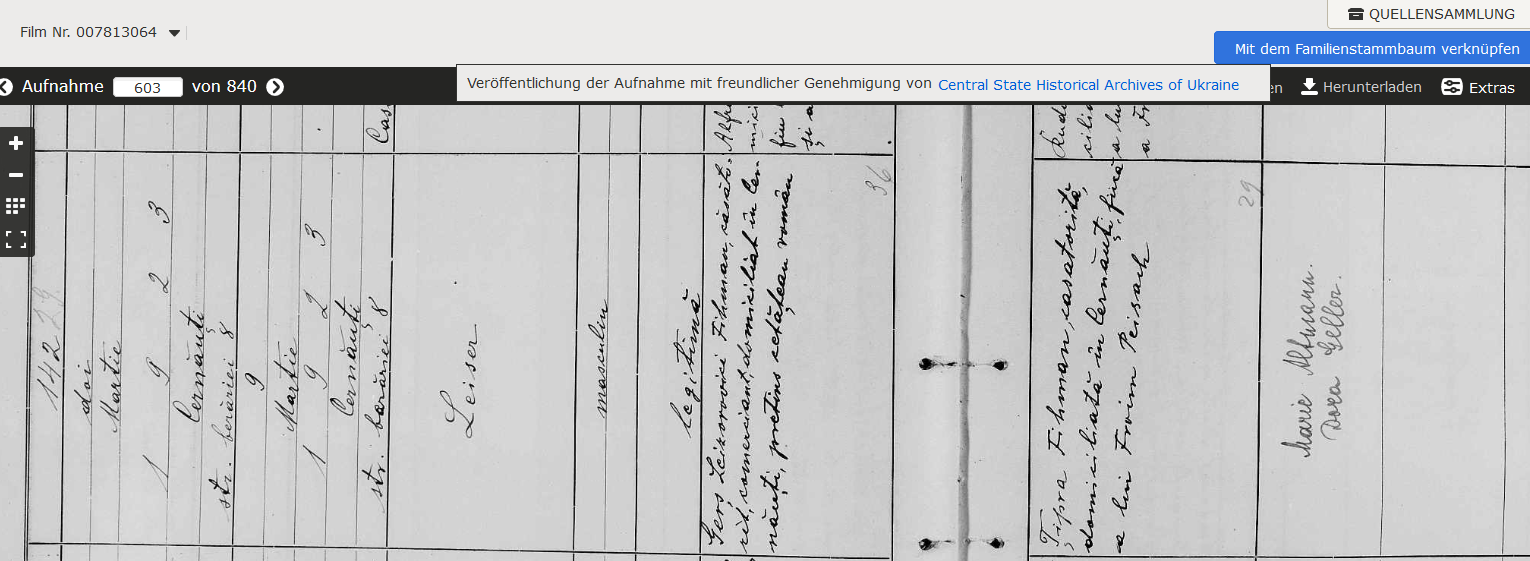 QUELLENSAMMLUNG
Film Nr. 007813064
Mit dem Familienstammbaum verknüpfen
Aufnahme 603 von 840
Veröffentlichung der Aufnahme mit freundlicher Genehmigung von Central State Historical Archives of Ukraine
en
Herunterladen
Extras
142
29
doi
Martie
1 9 2 3
Cernăuți
str. berăriei 8
9
Martie
1 9 2 3
Cernăuți
str. barăriei 8
Leiser
masculin
legitimă
Gerș Leizorovici Fihman, căsăto-
rit, comerciant, domiciliat în Cer-
năuți, pretins cetățean român
36
Țipra Fihman, casatorită,
domiciliată în Cernăuți, fiică
a lui Froim Peisach
29
Marie Altmann.
Dora Geller.